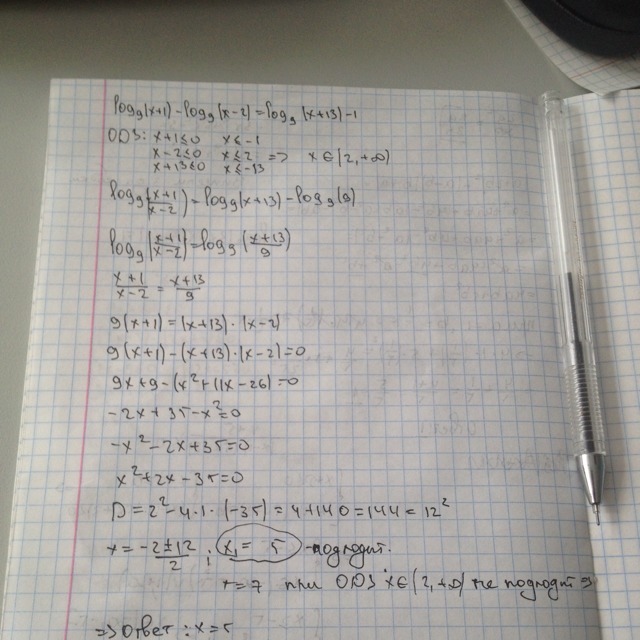 log₉(x+1)-log₉(x-2)=log₉(x+13)-1
ОДЗ: x+1≤0 x≤-1
x-2≤0 x≤2 => x∈(2,+∞)
x+13≤0 x≤-13
log₉(x+1/x-2)=log₉(x+13)-log₉(9)
log₉(x+1/x-2)=log₉(x+13/9)
x+1/x-2=x+13/9
9(x+1)=(x+13)·(x-2)
9(x+1)-(x+13)·(x-2)=0
9x+9-(x²+11x-26)=0
-2x+35-x²=0
-x²-2x+35=0
x²+2x-35=0
D=2²-4·1·(-35)=4+140=144=12²
x=-2±12/2; x₁=5 подходит.
x=7 при ОДЗ x∈(2,+∞) не подходит =>
=> Ответ: x=5